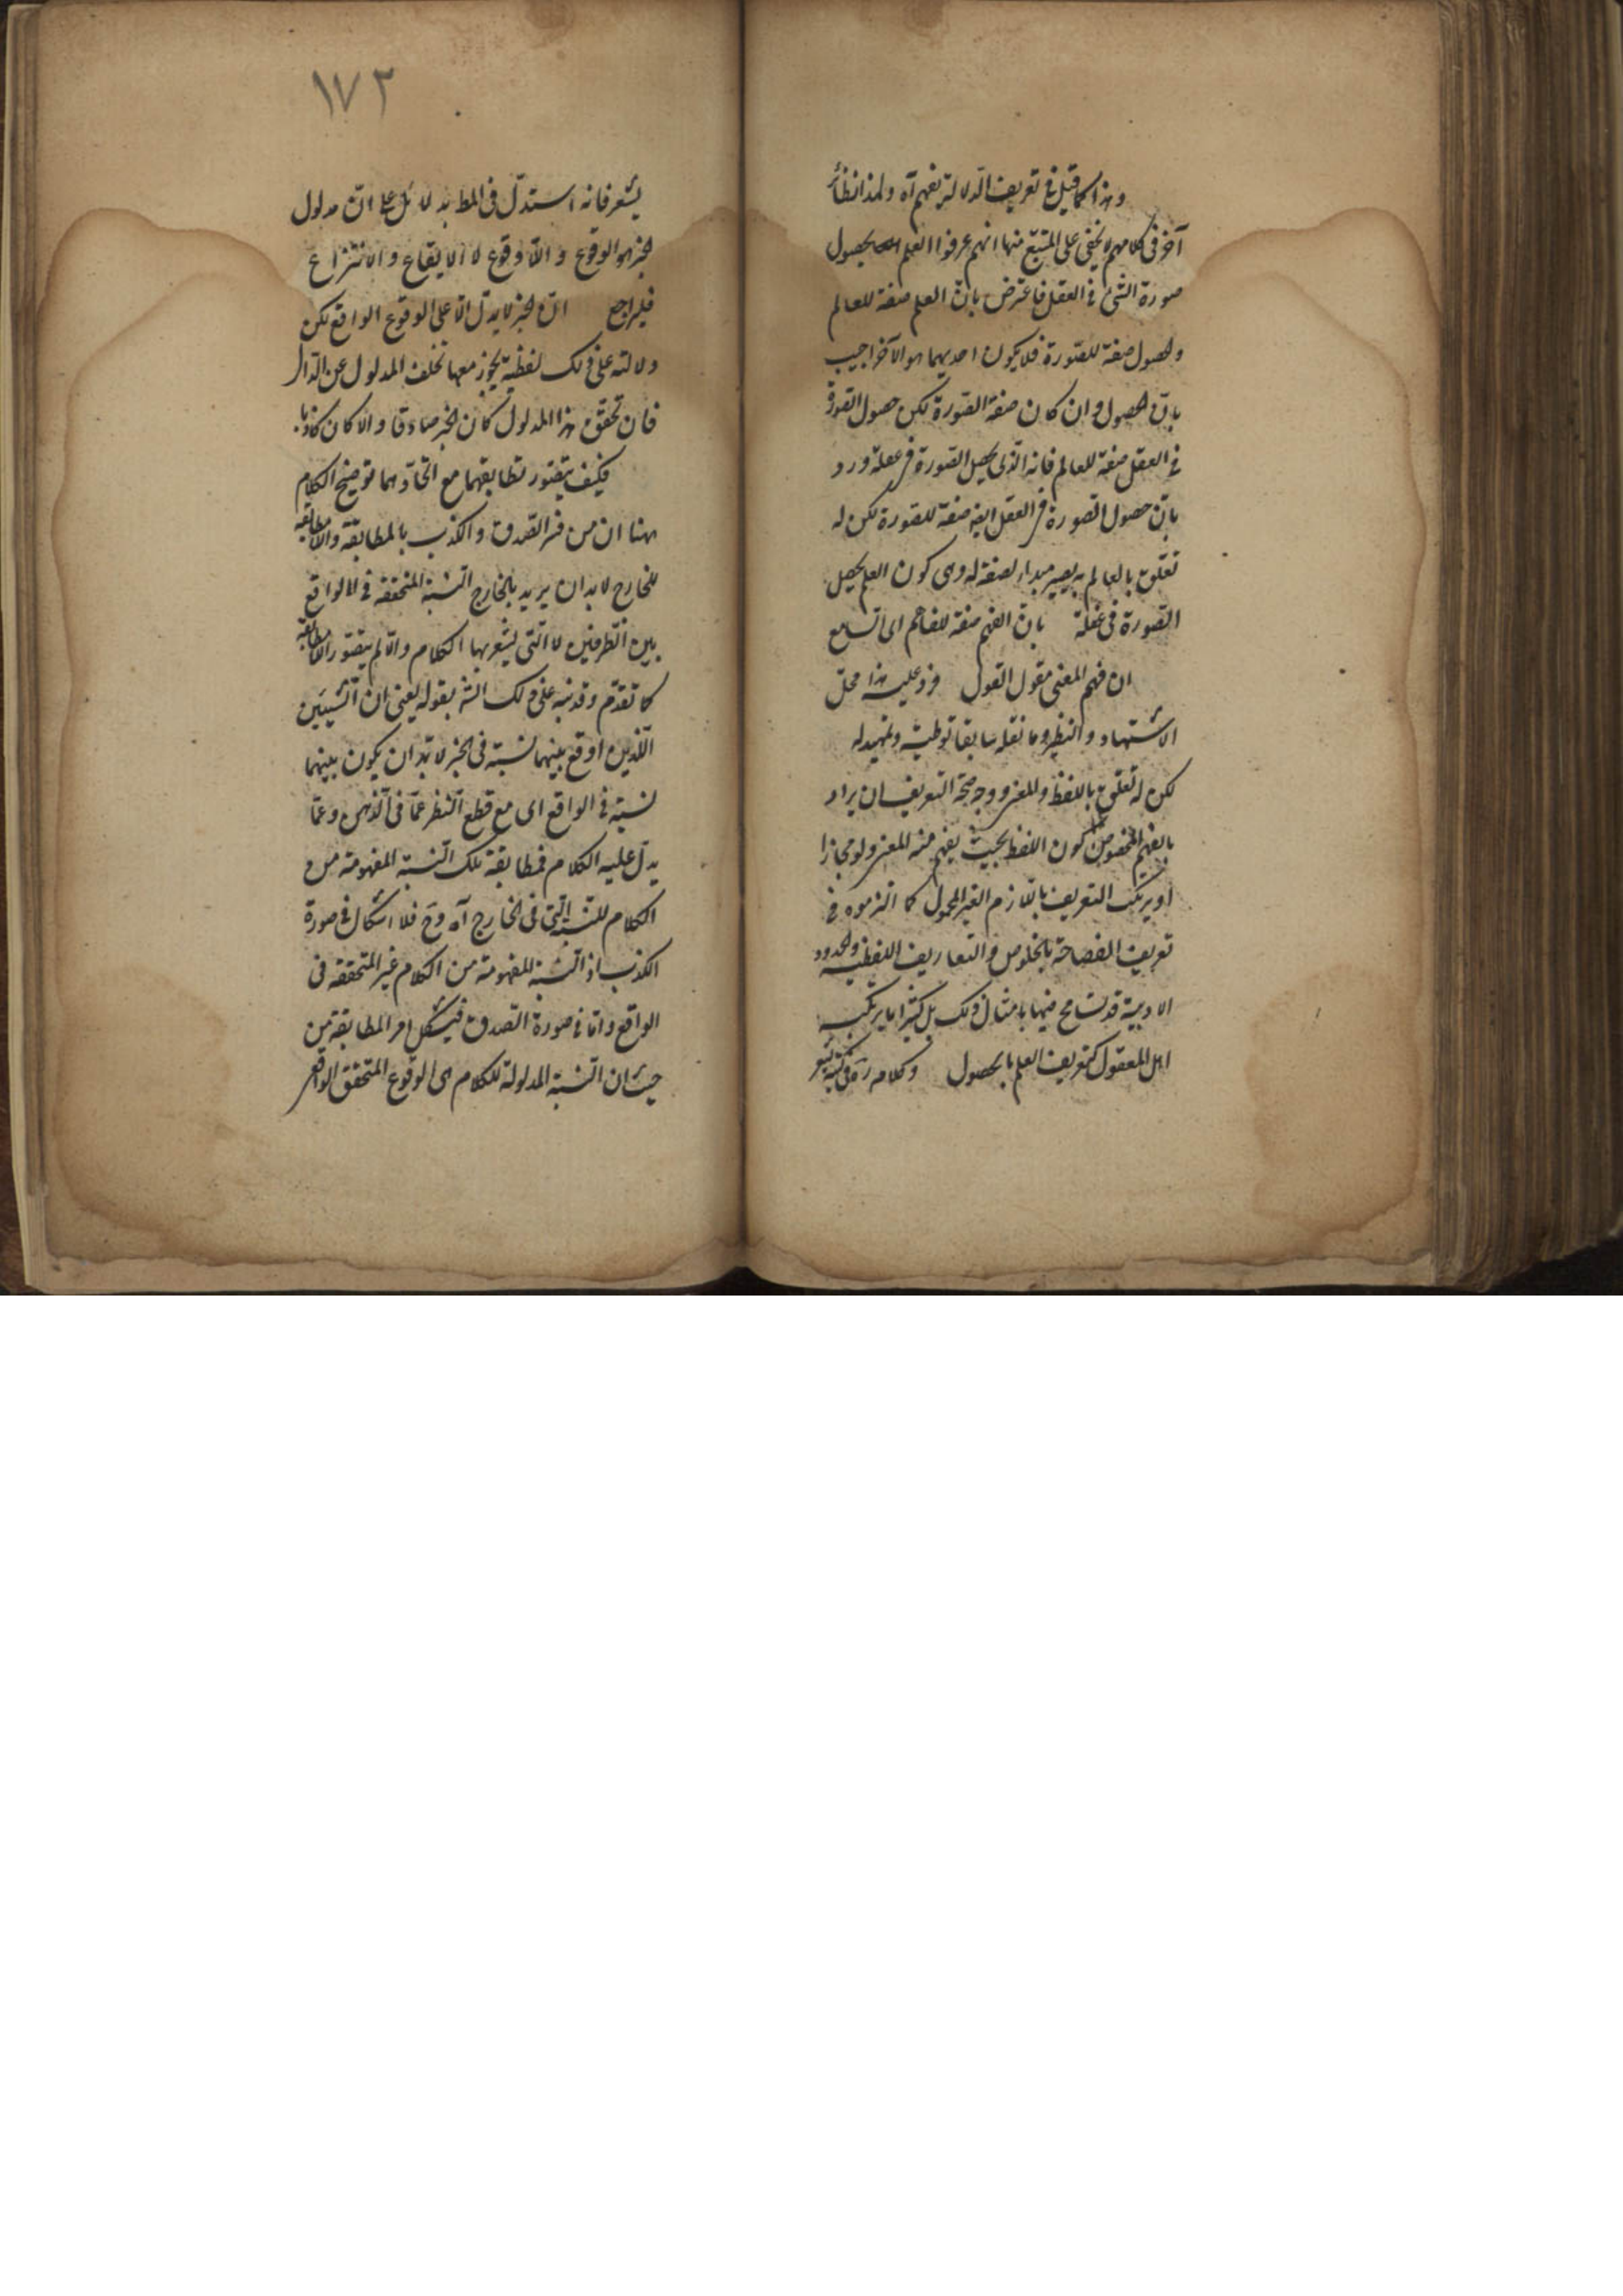 وهذا كما قيل في تعريف الدلالة بفهم آه ولهذا نظائر
آخر في كلامهم لا يخفى على المتتبع منها انهم عرفوا العلم بحصول
صورة الشئ في العقل فاعترض بان العلم صفة للعالم
والحصول صفة للصورة فلا يكون احديهما هو الآخر اجيب
بان الحصول وان كان صفة الصورة لكن حصول الصورة
في العقل صفة للعالم فانه الذى يحصل الصورة في عقله ورد
بان حصول الصورة في العقل ايضه صفة للصورة لكن له
تعلق بالعالم به يصير مبداء لصفة له وهى كون العلم يحصل
الصورة في عقله بان الفهم صفة للفاهم اى السامع
ان فهم المعنى مقول القول فرد عليه هذا محل
الاستشهاد والنظير وما نقله سابقا توطئة وتمهيد له
لكن له تعلق باللفظ والمعنى ووجه صحة التعريف ان يراد
بالفهم المخصوص كون اللفظ بحيث يفهم منه المعنى ولو مجازا
او يرتكب التعريف باللازم الغير المحمول كما التزموه في
تعريف الفصاحة بالخلوص والتعاريف اللفظية والحدود
الادبية قد تسامح فيها بامثال ذلك بل كثيرا ما يرتكبه
اهل المعقول كتعريف العلم بالحصول وكلامه في كتبه
١٧٢
يشعر فانه استدل في المط بدلائل على ان مدلول
الخبر هو الوقوع واللاوقوع لا الايقاع والانتزاع
فليراجع ان الخبر لا يدل الا على الوقوع الواقع لكن
دلالته على ذلك لفظية يجوز معها تخلف المدلول عن الدال
فان تحقق هذا المدلول كان الخبر صادقا والا كان كاذبا
فكيف يتصور تطابقهما مع اتحادهما توضيح الكلام
ههنا ان من فسر الصدق والكذب بالمطابقة واللامطابقة
للخارج لابد ان يريد بالخارج النسبة المتحققة في الواقع
بين الطرفين لا التى يشعر بها الكلام والا لم يتصور اللامطابقة
كما تقدم وقد نبه على ذلك الشه بقوله يعنى ان الشيئين
اللذين اوقع بينهما نسبة في الخبر لابد ان يكون بينهما
نسبة في الواقع اى مع قطع النظر عما في الذهن وعما
يدل عليه الكلام فمطابقة تلك النسبة المفهومة من
الكلام للنسبة التى في الخارج آه وح فلا اشكال في صورة
الكذب اذ النسبة المفهومة من الكلام غير المتحققه في
الواقع واما في صورة الصدق فيشكل امر المطابقة من
حيث ان النسبة المدلولة للكلام هى الوقوع المتحقق الواقع